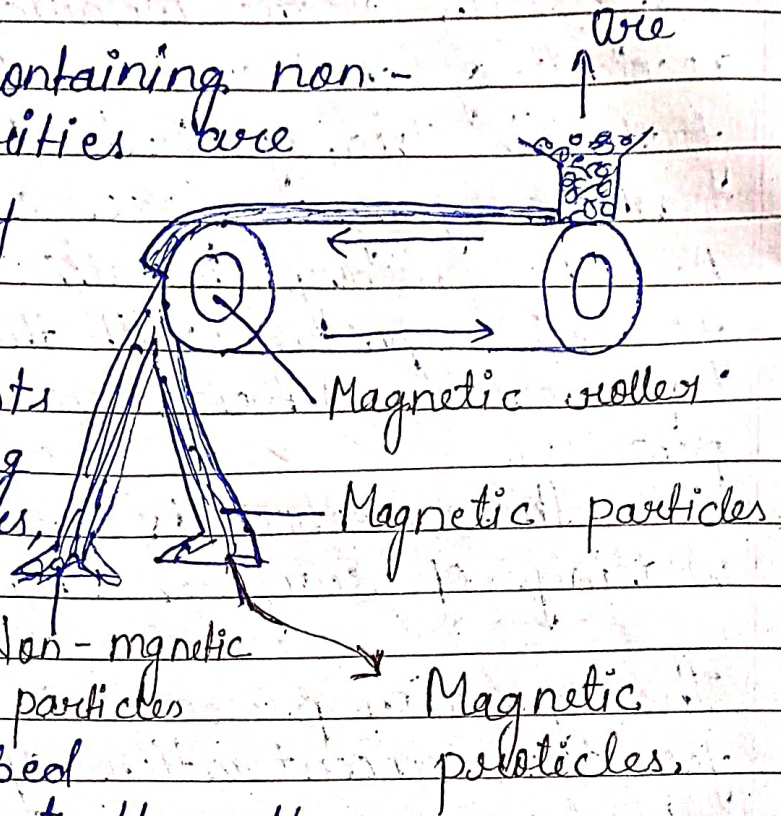 are
ontaining non-
ities are
ts
g
es,
Magnetic roller
Magnetic particles
Non-mgnetic
particles
Magnetic
proticles.
bed